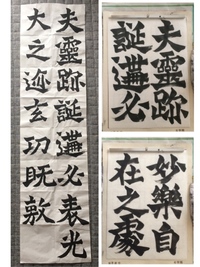 夫靈跡誕遘必表光
大之迹玄功既敷
夫靈跡
誕遘必
妙樂自
在之處